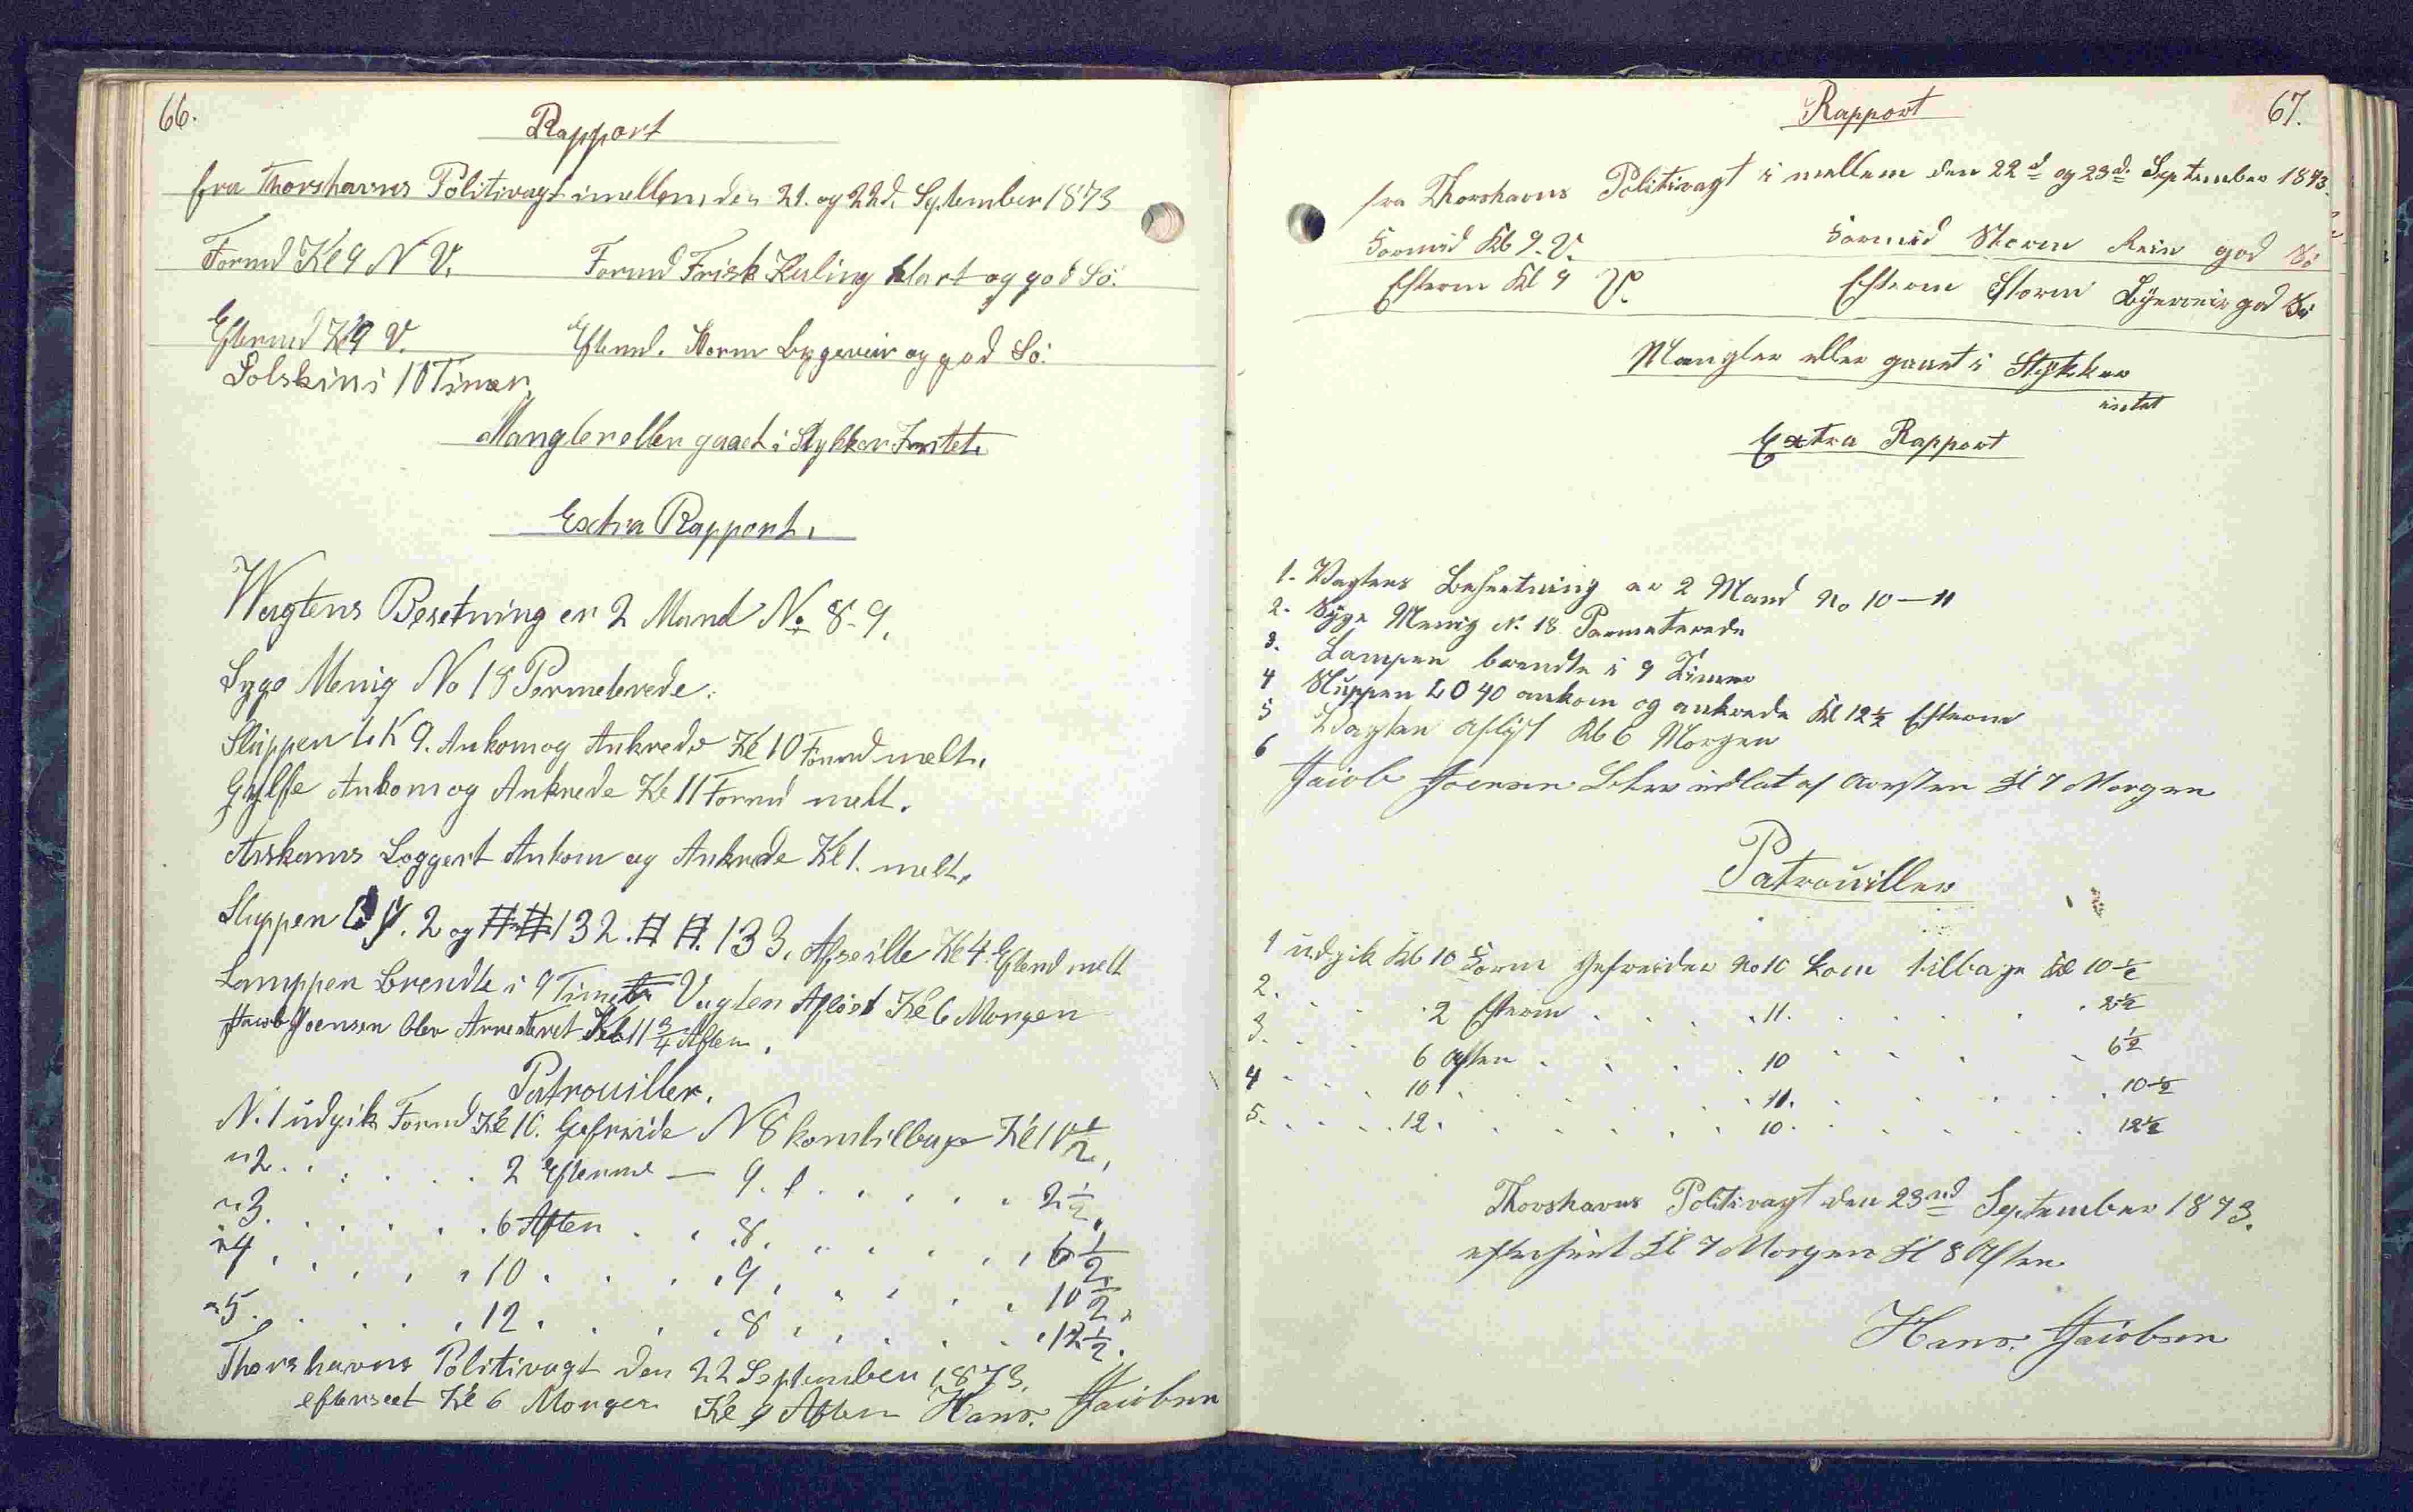 66.
Rapport
fra Thorshavns Politivagt imellem den 21. og 22d. September 1873
Formd Kl 9 N V. Formd Frisk Kuling klart og god Sö.
Eftermd Kl 9 V. Eftmd. Storm Bygeveir og god Sö.
Solskin i 10 Timer
Mangler eller gaaet i Stykker Intet.
Extra Rapport.
Wagtens Besetning er 2 Mand No 8-9.
Syge Menig No 18 Permeterede.
Sluppen L K 9. Ankom og Ankrede Kl 10 Formd melt.
Ankom og Ankrede Kl 11 Formd melt.
Loggert Ankom og Ankrede Kl 1. melt.
Sluppen 2 og 132. 133. Afseilte Kl 4 Eftmd melt
Lamppen brendte i 9 Timer Vagten Aflöst Kl 6 Morgen
Jacob Joensen blev Arresteret Kl 11 3/4 Aften.
Patrouiller.
N. 1 udgik Formd Kl 10. Gefreide N 8 kom tilbage Kl 10 1/2,
" 2 . . . . . 2 Eftermd — 9. . . . . . 2 1/2.
" 3. . . . . . 6 Aften . . 8. . . . . . 6 1/2
" 4 . . . . . 10 . . . 9 . . . . . 10 1/2.
" 5. . . . . . 12 . . . 8 . . . . . 12 1/2.
Thorshavns Politivagt den 22 September 1873.
efterseet Kl 6 Morgen Kl 9 Aften Hans. Jacobsen
67.
Rapport
fra Thorshavns Politivagt i mellem den 22d og 23d. September 1873.
Formid Kl 9. V. Formid Storm Rein god Sö
Efterm Kl 9 V. Efterm Storm Byeveir god Sö
Mangler eller gaaet i Stykker
intet
Extra Rapport
1. Vagtens Besætning er 2 Mand No 10-11
2. Syge Menig N. 18 Parmeterede
3. Lampen brendte i 9 Timer
4 Sluppen L O 40 ankom og ankrede Kl 12 1/2 Efterm
5 Vagten aflöst Kl 6 Morgen
6 Jacob Joensen blev udlat af Kl 7 Morgen
Patrouiller
1 udgik Kl 10 Form Gefreider No 10 kom tilbage Kl 10 1/2
2. . . 2 Efterm . . . . 11. . . . . . 2 1/2
3. . . 6 Aften . . . . 10 . . . . 6 1/2
4 . . . 10 . . . . . 11. . . . . . 10 1/2
5. . . . . 12. . . . . . 10. . . . . . 12 1/2
Thorshavns Politivagt den 23nd September 1873.
efterseet Kl 7 Morgen Kl 8 Aften
Hans. Jacobsen